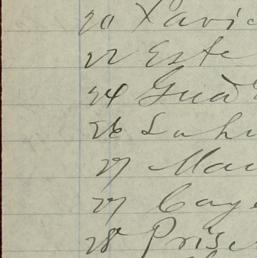 20 Xavi
22 Este
24 Guad
26 Lahu
27 Mau
27 Caye
28 Prise